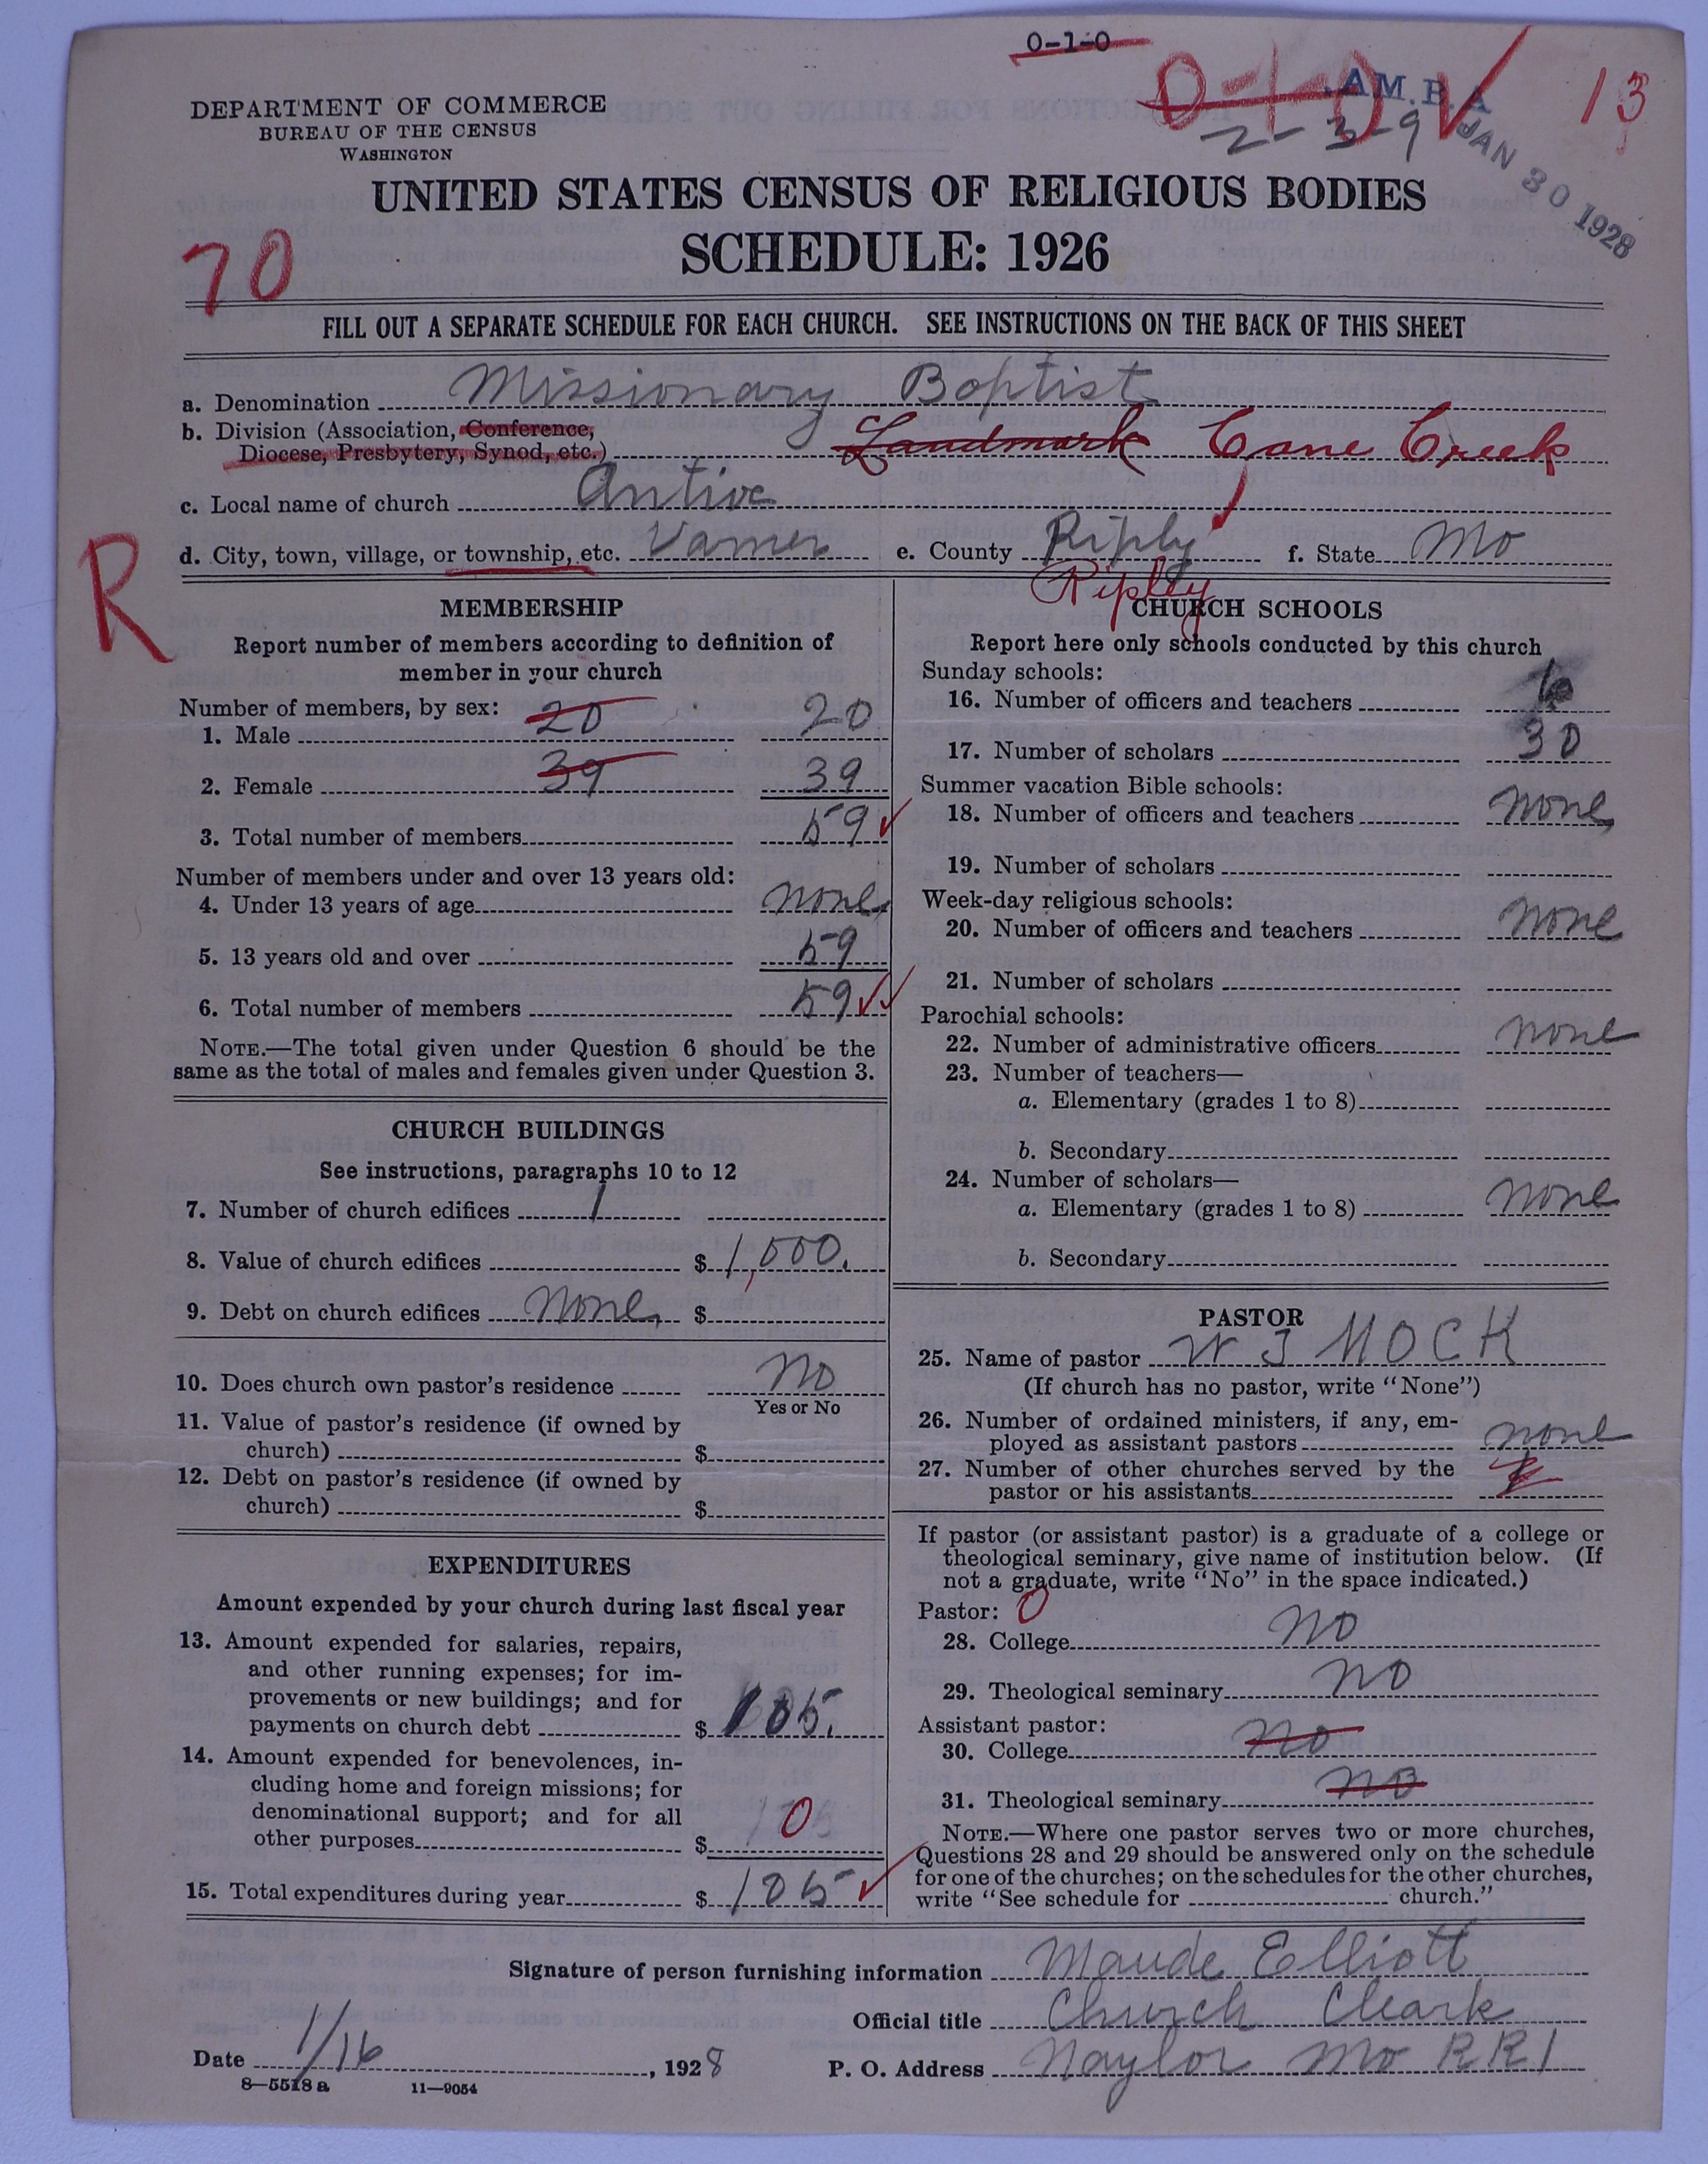 0-1-0
0-1-0 13
AM. B. A
2-3-9
JAN 30 1928
DEPARTMENT OF COMMERCE
BUREAU OF THE CENSUS
WASHINGTON
UNITED STATES CENSUS OF RELIGIOUS BODIES
SCHEDULE: 1926
70
FILL OUT A SEPARATE SCHEDULE FOR EACH CHURCH. SEE INSTRUCTIONS ON THE BACK OF THIS SHEET
a. Denomination Missionary Baptist
b. Division (Association, Conference,
Diocese, Presbytery, Synod, etc.) Landmark Cane Creek
c. Local name of church Antioc
d. City, town, village, or township, etc. Varner e. County Riply f. State Mo
Ripley
R
MEMBERSHIP
Report number of members according to definition of
member in your church
Number of members, by sex:
1. Male 20 20
2. Female 39 39
3. Total number of members 59
Number of members under and over 13 years old:
4. Under 13 years of age none
5. 13 years old and over 59
6. Total number of members 59
NOTE.—The total given under Question 6 should be the
same as the total of males and females given under Question 3.
CHURCH BUILDINGS
See instructions, paragraphs 10 to 12
7. Number of church edifices 1
8. Value of church edifices $ 1,000.
9. Debt on church edifices none $
10. Does church own pastor's residence no
Yes or No
11. Value of pastor's residence (if owned by
church) $
12. Debt on pastor's residence (if owned by
church) $
EXPENDITURES
Amount expended by your church during last fiscal year
13. Amount expended for salaries, repairs,
and other running expenses; for im-
provements or new buildings; and for
payments on church debt $ 105.
14. Amount expended for benevolences, in-
cluding home and foreign missions; for
denominational support; and for all
other purposes $ 0
15. Total expenditures during year $ 105
CHURCH SCHOOLS
Report here only schools conducted by this church
Sunday schools:
16. Number of officers and teachers 6
17. Number of scholars 30
Summer vacation Bible schools:
18. Number of officers and teachers none
19. Number of scholars
Week-day religious schools:
20. Number of officers and teachers none
21. Number of scholars
Parochial schools:
22. Number of administrative officers none
23. Number of teachers—
a. Elementary (grades 1 to 8)
b. Secondary
24. Number of scholars—
a. Elementary (grades 1 to 8) none
b. Secondary
PASTOR
25. Name of pastor W J MOCK
(If church has no pastor, write "None")
26. Number of ordained ministers, if any, em-
ployed as assistant pastors none
27. Number of other churches served by the
pastor or his assistants
If pastor (or assistant pastor) is a graduate of a college or
theological seminary, give name of institution below. (If
not a graduate, write "No" in the space indicated.)
Pastor: 0
28. College no
29. Theological seminary no
Assistant pastor:
30. College no
31. Theological seminary no
NOTE.—Where one pastor serves two or more churches,
Questions 28 and 29 should be answered only on the schedule
for one of the churches; on the schedules for the other churches,
write "See schedule for church."
Signature of person furnishing information Maude Elliott
Official title Church Cleark
Date 1/16, 1928 P. O. Address Naylor Mo RR1
8—5518 a 11—9054